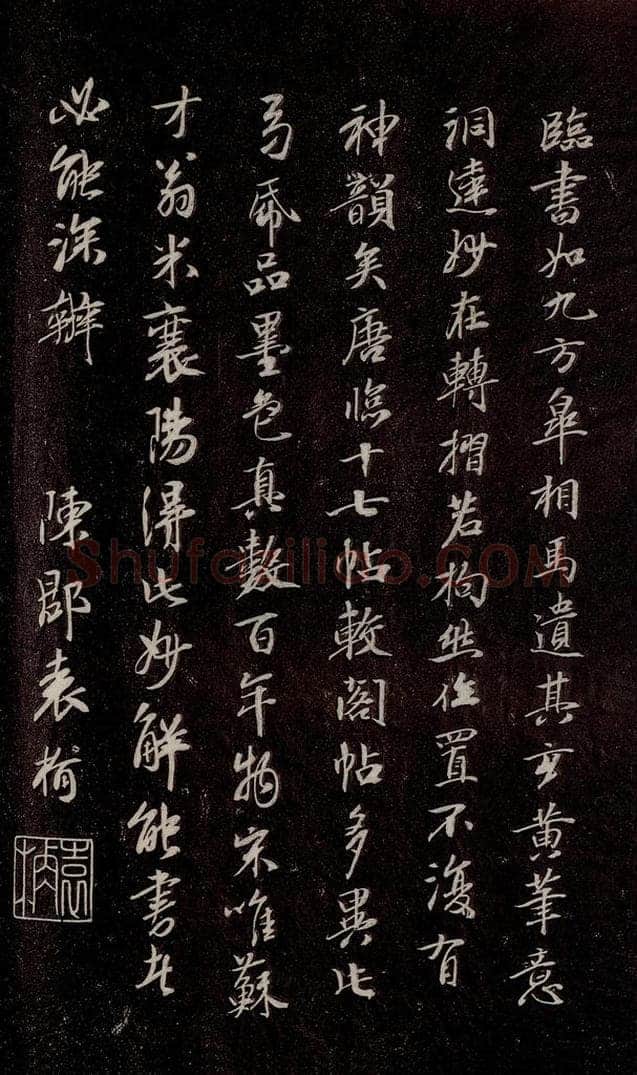 臨書如九方臯相馬遺其玄黃筆意
洞達妙在轉摺若拘然位置不復有
神韻矣唐臨十七帖較閣帖多異此
弓為品墨色真數百年物宋唯蘇
才翁米襄陽得此妙解能書者
必能深辨
陳郡袁桷
袁桷
Shufaziliao.com